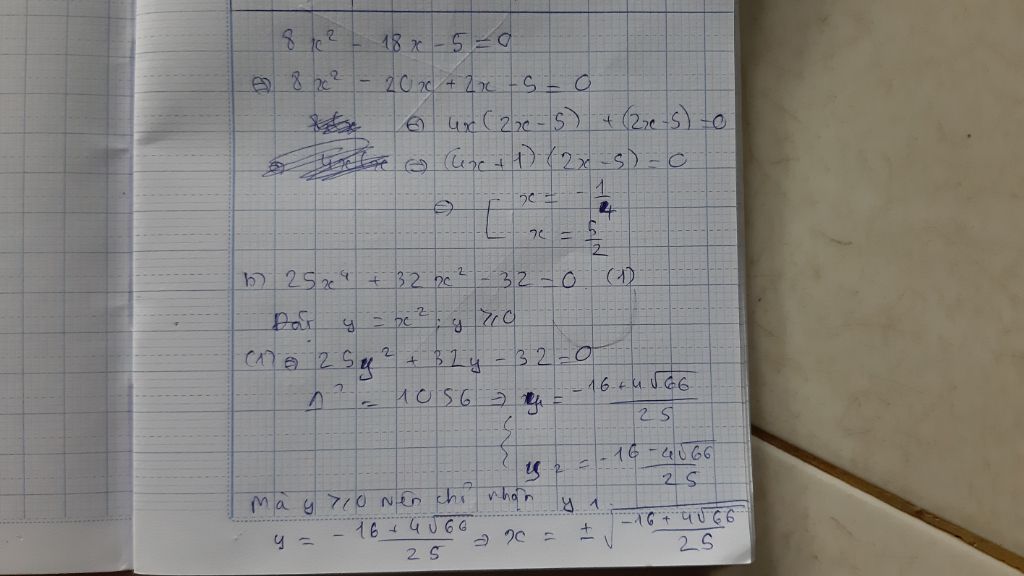 8x² - 18x - 5 = 0
⇔ 8x² - 20x + 2x - 5 = 0
⇔ 4x(2x-5) + (2x-5) = 0
⇔ (4x+1)(2x-5) = 0
⇔ [ x = -1/4
x = 5/2
b) 25x⁴ + 32x² - 32 = 0 (1)
Đặt y = x²; y ≥ 0
(1) ⇔ 25y² + 32y - 32 = 0
Δ' = 1056 ⇒ { y₁ = (-16+4√66)/25
y₂ = (-16-4√66)/25
Mà y ≥ 0 nên chỉ nhận y₁
y = -(16+4√66)/25 ⇒ x = ±√((-16+4√66)/25)